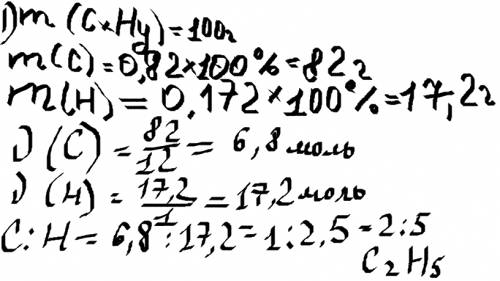 1) m (CxHy) = 100г
m(C) = 0,82 × 100% = 82 г
m(H) = 0,172 × 100% = 17,2г
ν (C) = 82/12 = 6,8 моль
ν (H) = 17,2/1 = 17,2 моль
C : H = 6,8 : 17,2 = 1 : 2,5 = 2 : 5
C₂H₅